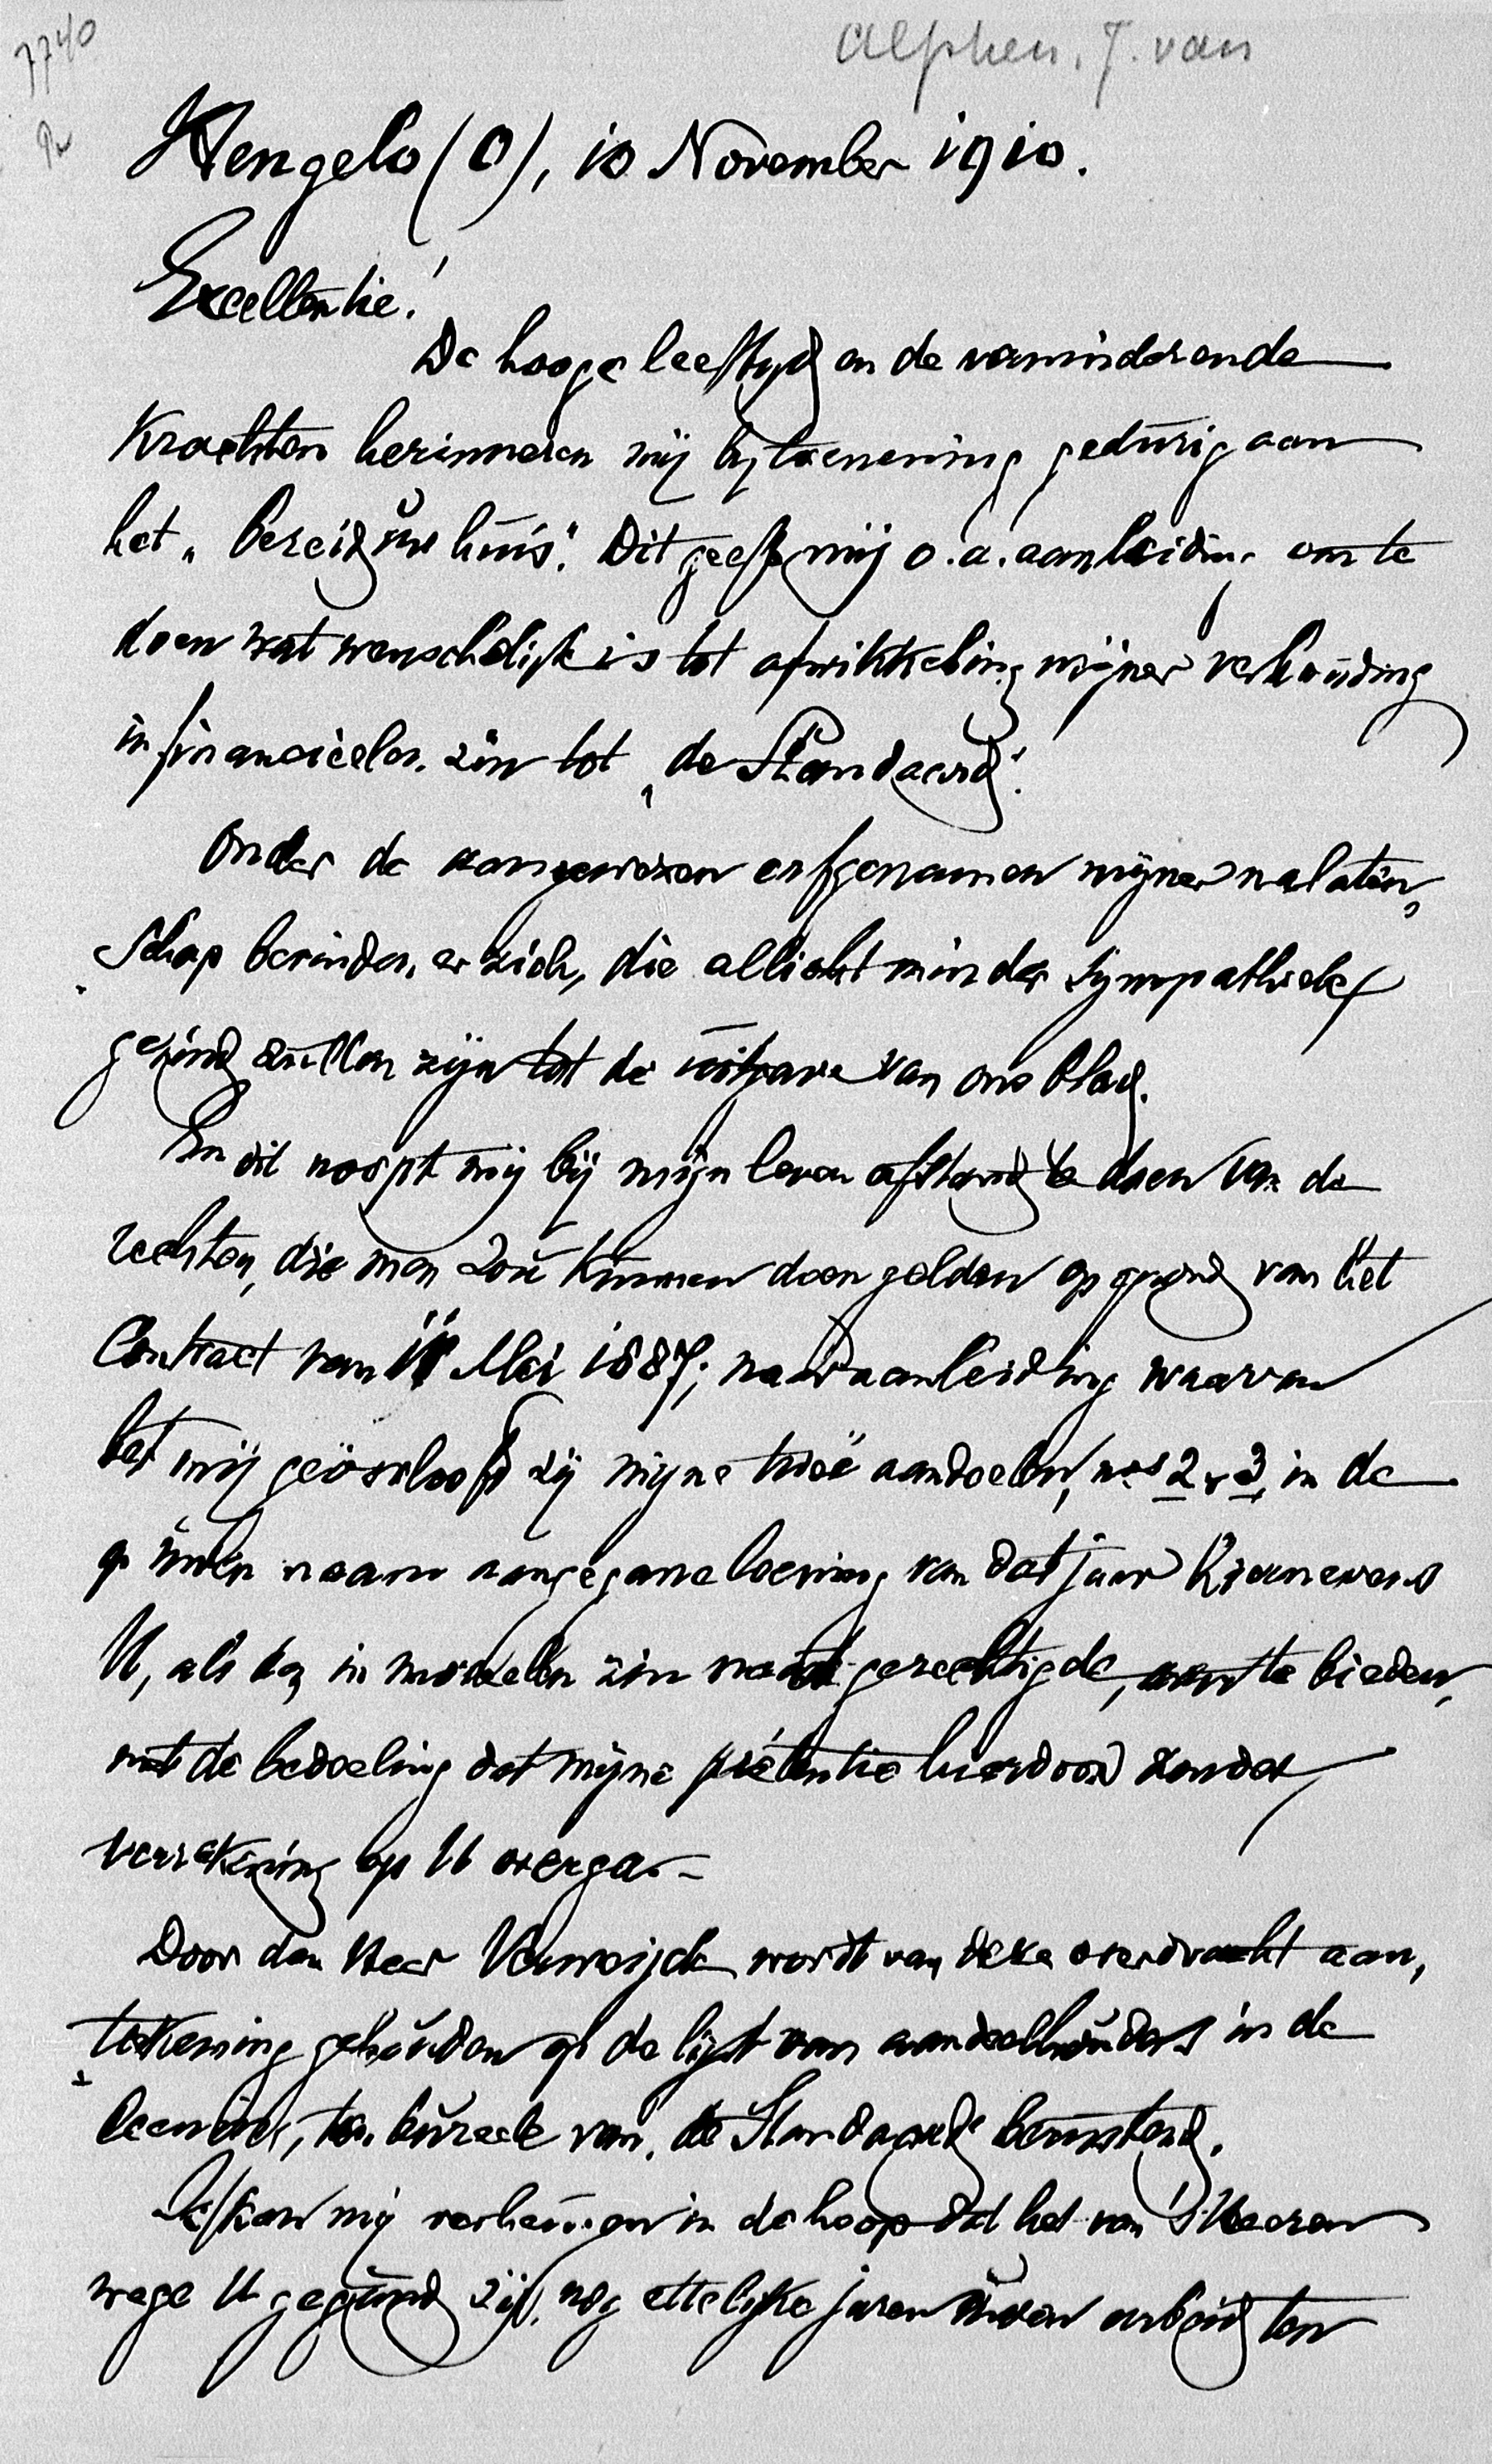 7740
Alphen, J. van
Hengelo (O), 10 November 1910.
Excellentie!
De hooge leeftijd en de verminderende
krachten herinneren mij bij toeneming gedurig aan
het „bereid uw huis". Dit geeft mij o.a. aanleiding om te
doen wat wenschelijk is tot afwikkeling mijner verhouding
in financieelen zin tot „de Standaard".
Onder de aangewezen erfgenamen mijner nalaten„
„schap bevinden er zich, die allicht minder sympathiek
gezind zullen zijn tot de uitgave van ons blad.
En dit noopt mij bij mijn leven afstand te doen van de
rechten, die men zou kunnen doen gelden op grond van het
Contract van 11 Mei 1887; naar aanleiding waarvan
het mij geoorloofd zij mijne twee aandeelen, nos 2 & 3, in de
op uwen naam aangegane leening van dat jaar hiernevens
U, als den in moreelen zin meest gerechtigde, aan te bieden,
met de bedoeling dat mijne pretentie hierdoor zonder
verrekening op U overga.–
Door den Heer Verweijck wordt van deze overdracht aan„
„teekening gehouden op de lijst van aandeelhouders in de
leening, ten bureele van „de Standaard" berustend.
Ik kan mij verheugen in de hoop dat het van 's Heeren
wege U gegund zij, nog ettelijke jaren uwen arbeid ten